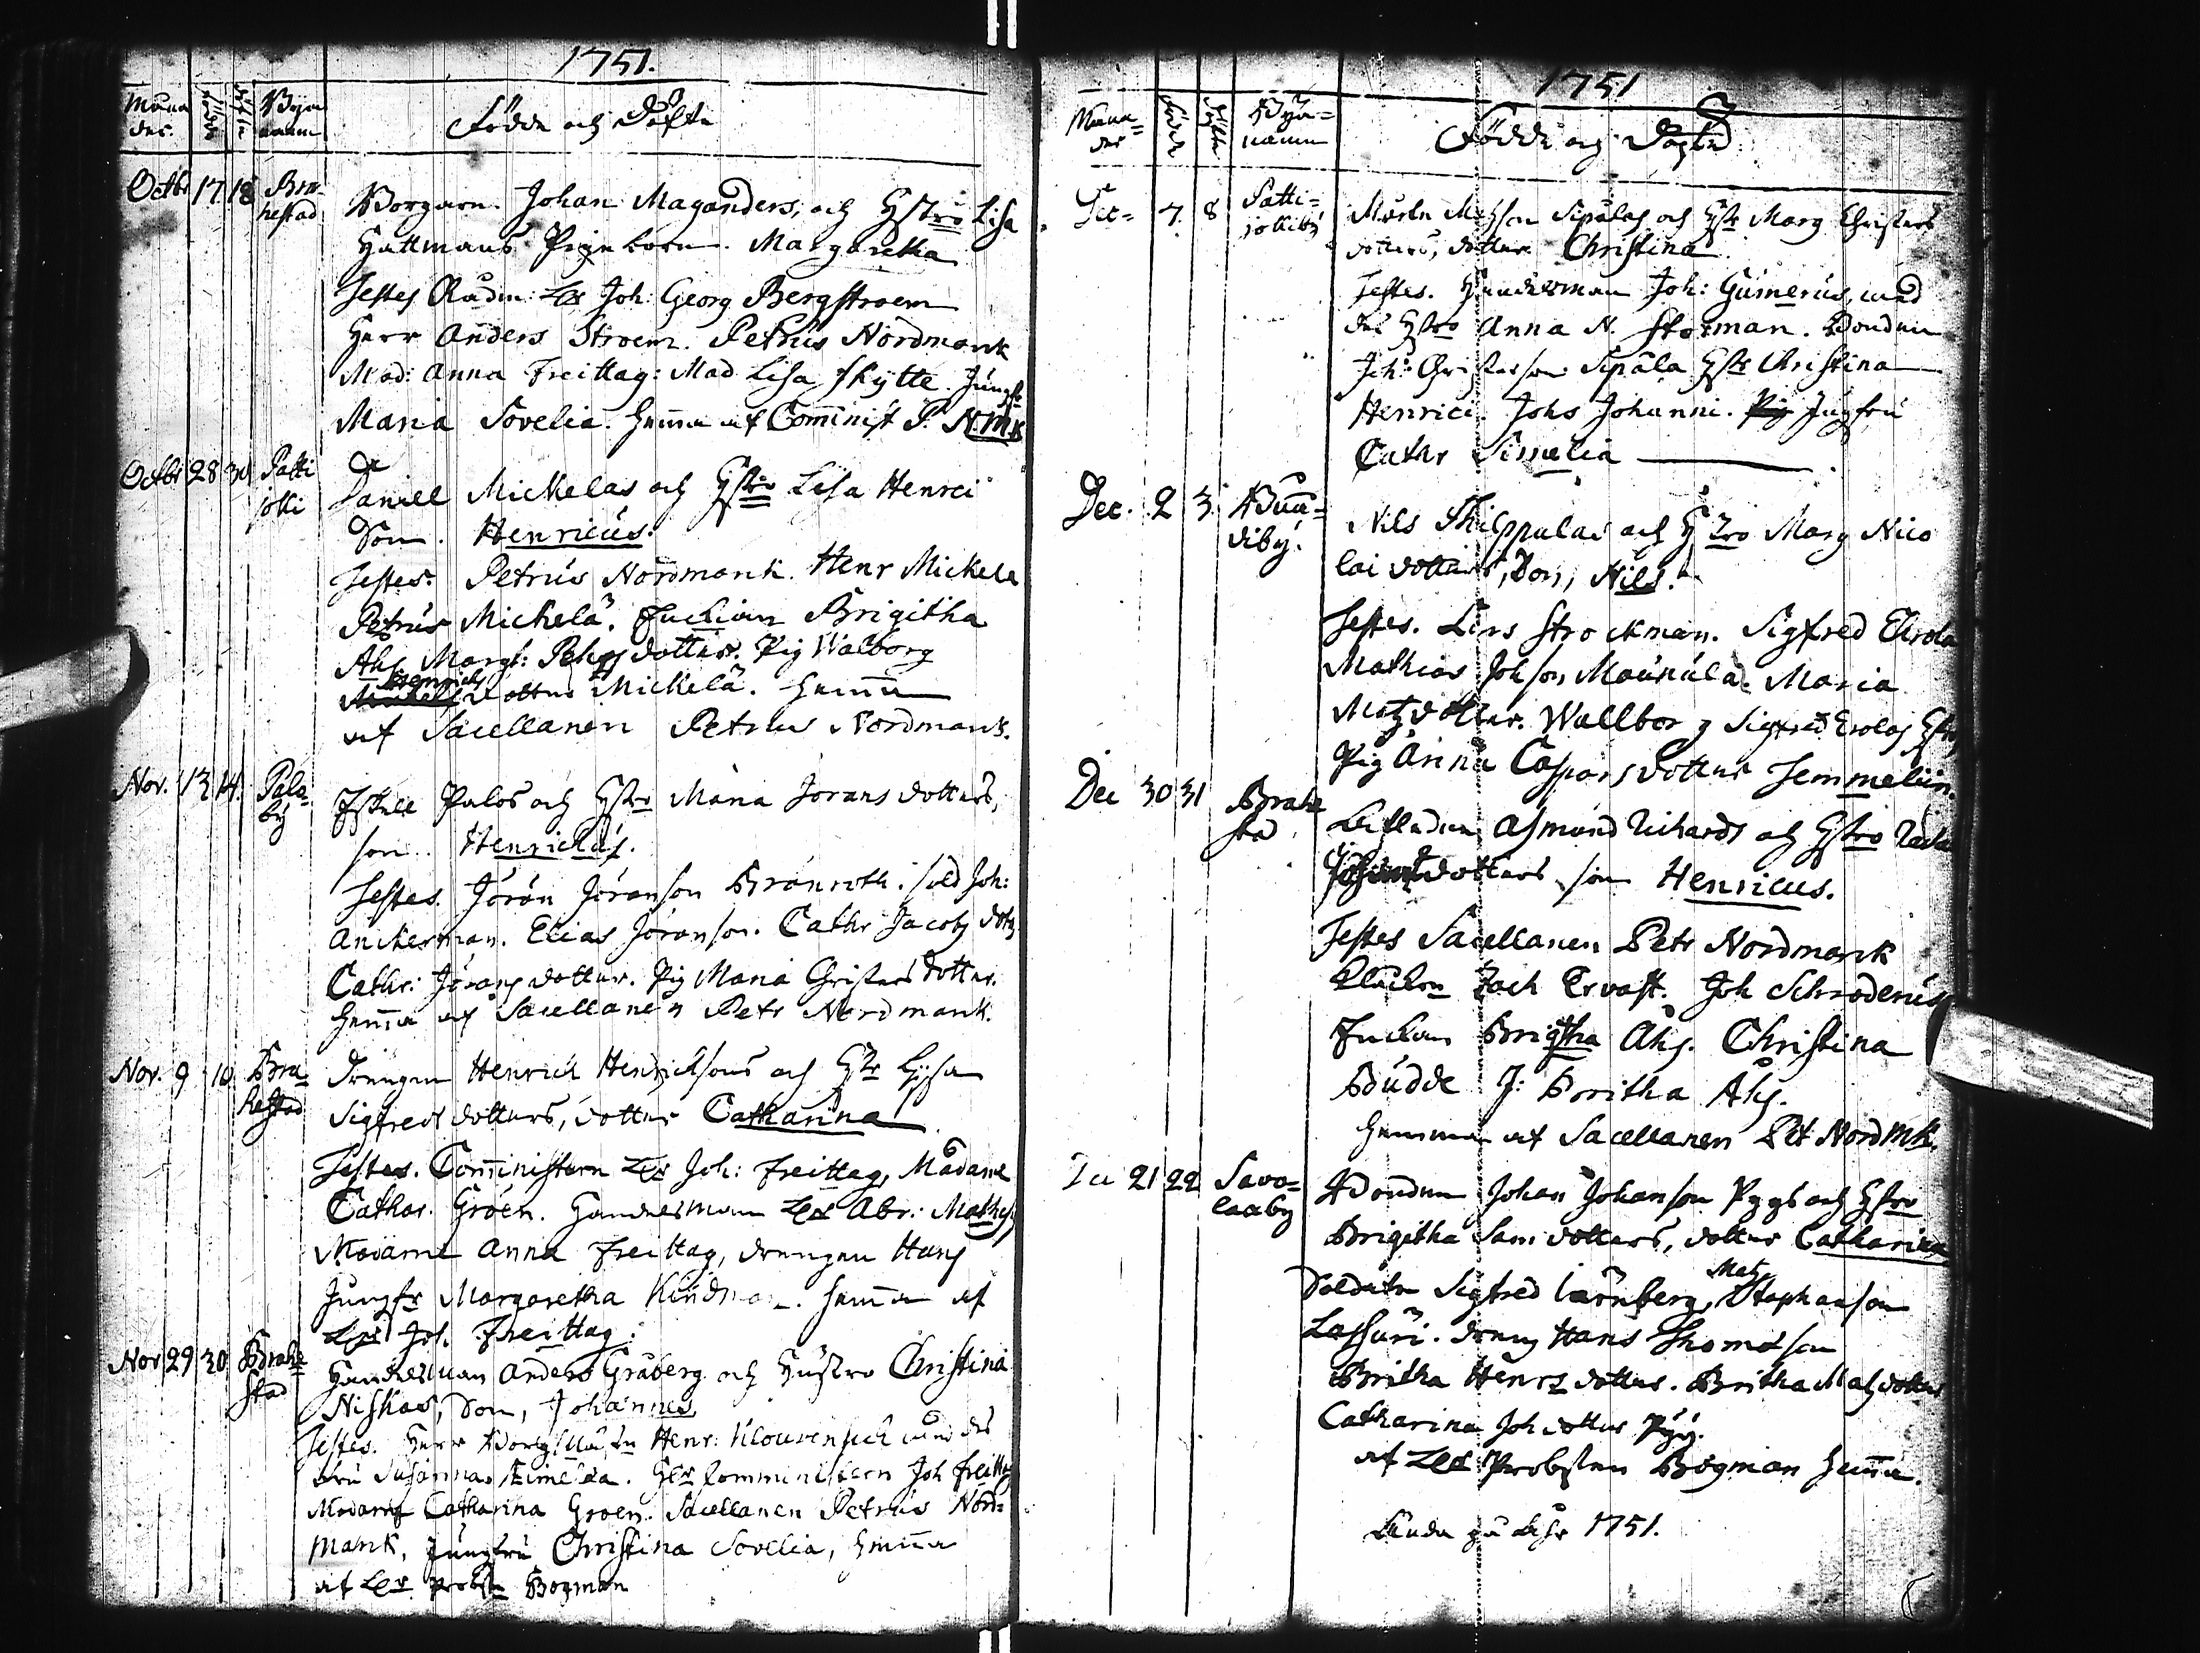 1751.
Måna
der.
Födde
Döpte
Byn
namn
Födde och Döpte
Octbr 17 18 Bra-
hestad
Borgaren Johan Maganders, och Hstro Lisa
Huttmans Pigebarn. Margaretha
Testes Rådm: Her Joh: Georg Bergstroem
Herr Anders Stroem. Petrus Nordmank
Mad: Anna Freittag: Mad Lisa Skytte. Jungfr
Maria Sovelia. Hemma af Cominist P. N.mk
Octbr 28 30 Patti
jokki
Daniel Mickelas och Hstro Lisa Henrici
Son. Henricus.
Testes. Petrus Nordmank. Henr Mickela
Petrus Mickelä. Fuckian Brigitha
Ahl Margt: Pehrs dotter. Pig Walborg
Henrichs
dotter Mickelä. Hemma
af Sacellanen Petrus Nordmank.
Nov. 13 14. Palo-
by
Eskell Palos och Hstro Maria Jörans dotters,
son. Henrickus.
Testes. Jöran Joranson Branroth. sold Joh:
Anckerman. Elias Joranson. Cathr Jacobs dotr
Cathr: Jörans dotter. Pig Maria Christers dotter.
hemma af Sacellanen Petr Nordmank.
Nov. 9 10 Bra-
hestad
Drengen Henrich Henrichsons och Hstr Lijsa
Sigfreds dotters, dotter Catharina
Testes. Comministern Her Joh: Freittag, Madame
Cathar. Groen. Handelsman Her Abr: Mathej
Madame Anna Freittag, drengen Hans
Jungfr Margaretha Kindman. hemma af
Her Joh. Freittag.
Nov 29 30 Brahe
stad
Handelsman Anders Gråberg och Hustro Christina
Niskas, Son, Johannes
Testes. Herr Borgmästn Henr: med des
fru Susanna Zimelia. Her Comministern Joh Freittag
Madame Catharina Groen. Sacellanen Petrus Nord-
mank, Jungfru Christina Sovelia, hemma
af Her probstn Bogman
1751
Måna-
der
Födde
Döpte
Bya-
namn
Födde och Döpte
Dec- 7. 8 Patti-
jokiby
Mårtn Matzson Sipålas och Hstr Marg Christers
dotters, dotter Christina
Testes. Handelsman Joh: Gumerus, med
des Hstro Anna N. Storman. Bonden
Joh: Christerson Sipåla Hstr Christina
Henrici. Johs Johanni. Pig Jugfru
Cathr Simelia
Dec. 2 3. Bun-
diby.
Nils Philppulas och Hstro Marg Nico
lai dotters, Son, Nils.
Testes. Lars Strockman. Sigfred Erola
Mathias Johson Maunula. Maria
Matz dotter. Wallborg Sigfred Erolas Hstro
Pig Anna Caspars dotter Semmelin.
Dec 30 31 Brahe
sta
Asmund Richards och Hstro
dotters son Henricus.
Testes Sacellanen Petr Nordmank
Klåckn Zach Ervast. Joh Schroderus
Fuckan Brigtha Ahl. Christina
Budde J: Britha Ahl.
hemma af Sacellanen Pet Nordmk.
Dec 21 22 Savo-
laxby
Bonden Johan Johanson Pyys och Hstro
Brigitha Sam dotters, dotter Catharina
Matz
Soldatn Sigfred Lärnberg, Staphanson
Lassuri. Dreng Hans Thomeson
Britha Henrs dotter. Britha Matz dotter
Catharina Joh dotter Pyy.
af Her Probsten Bogman hemma.
Ända på åhr 1751.